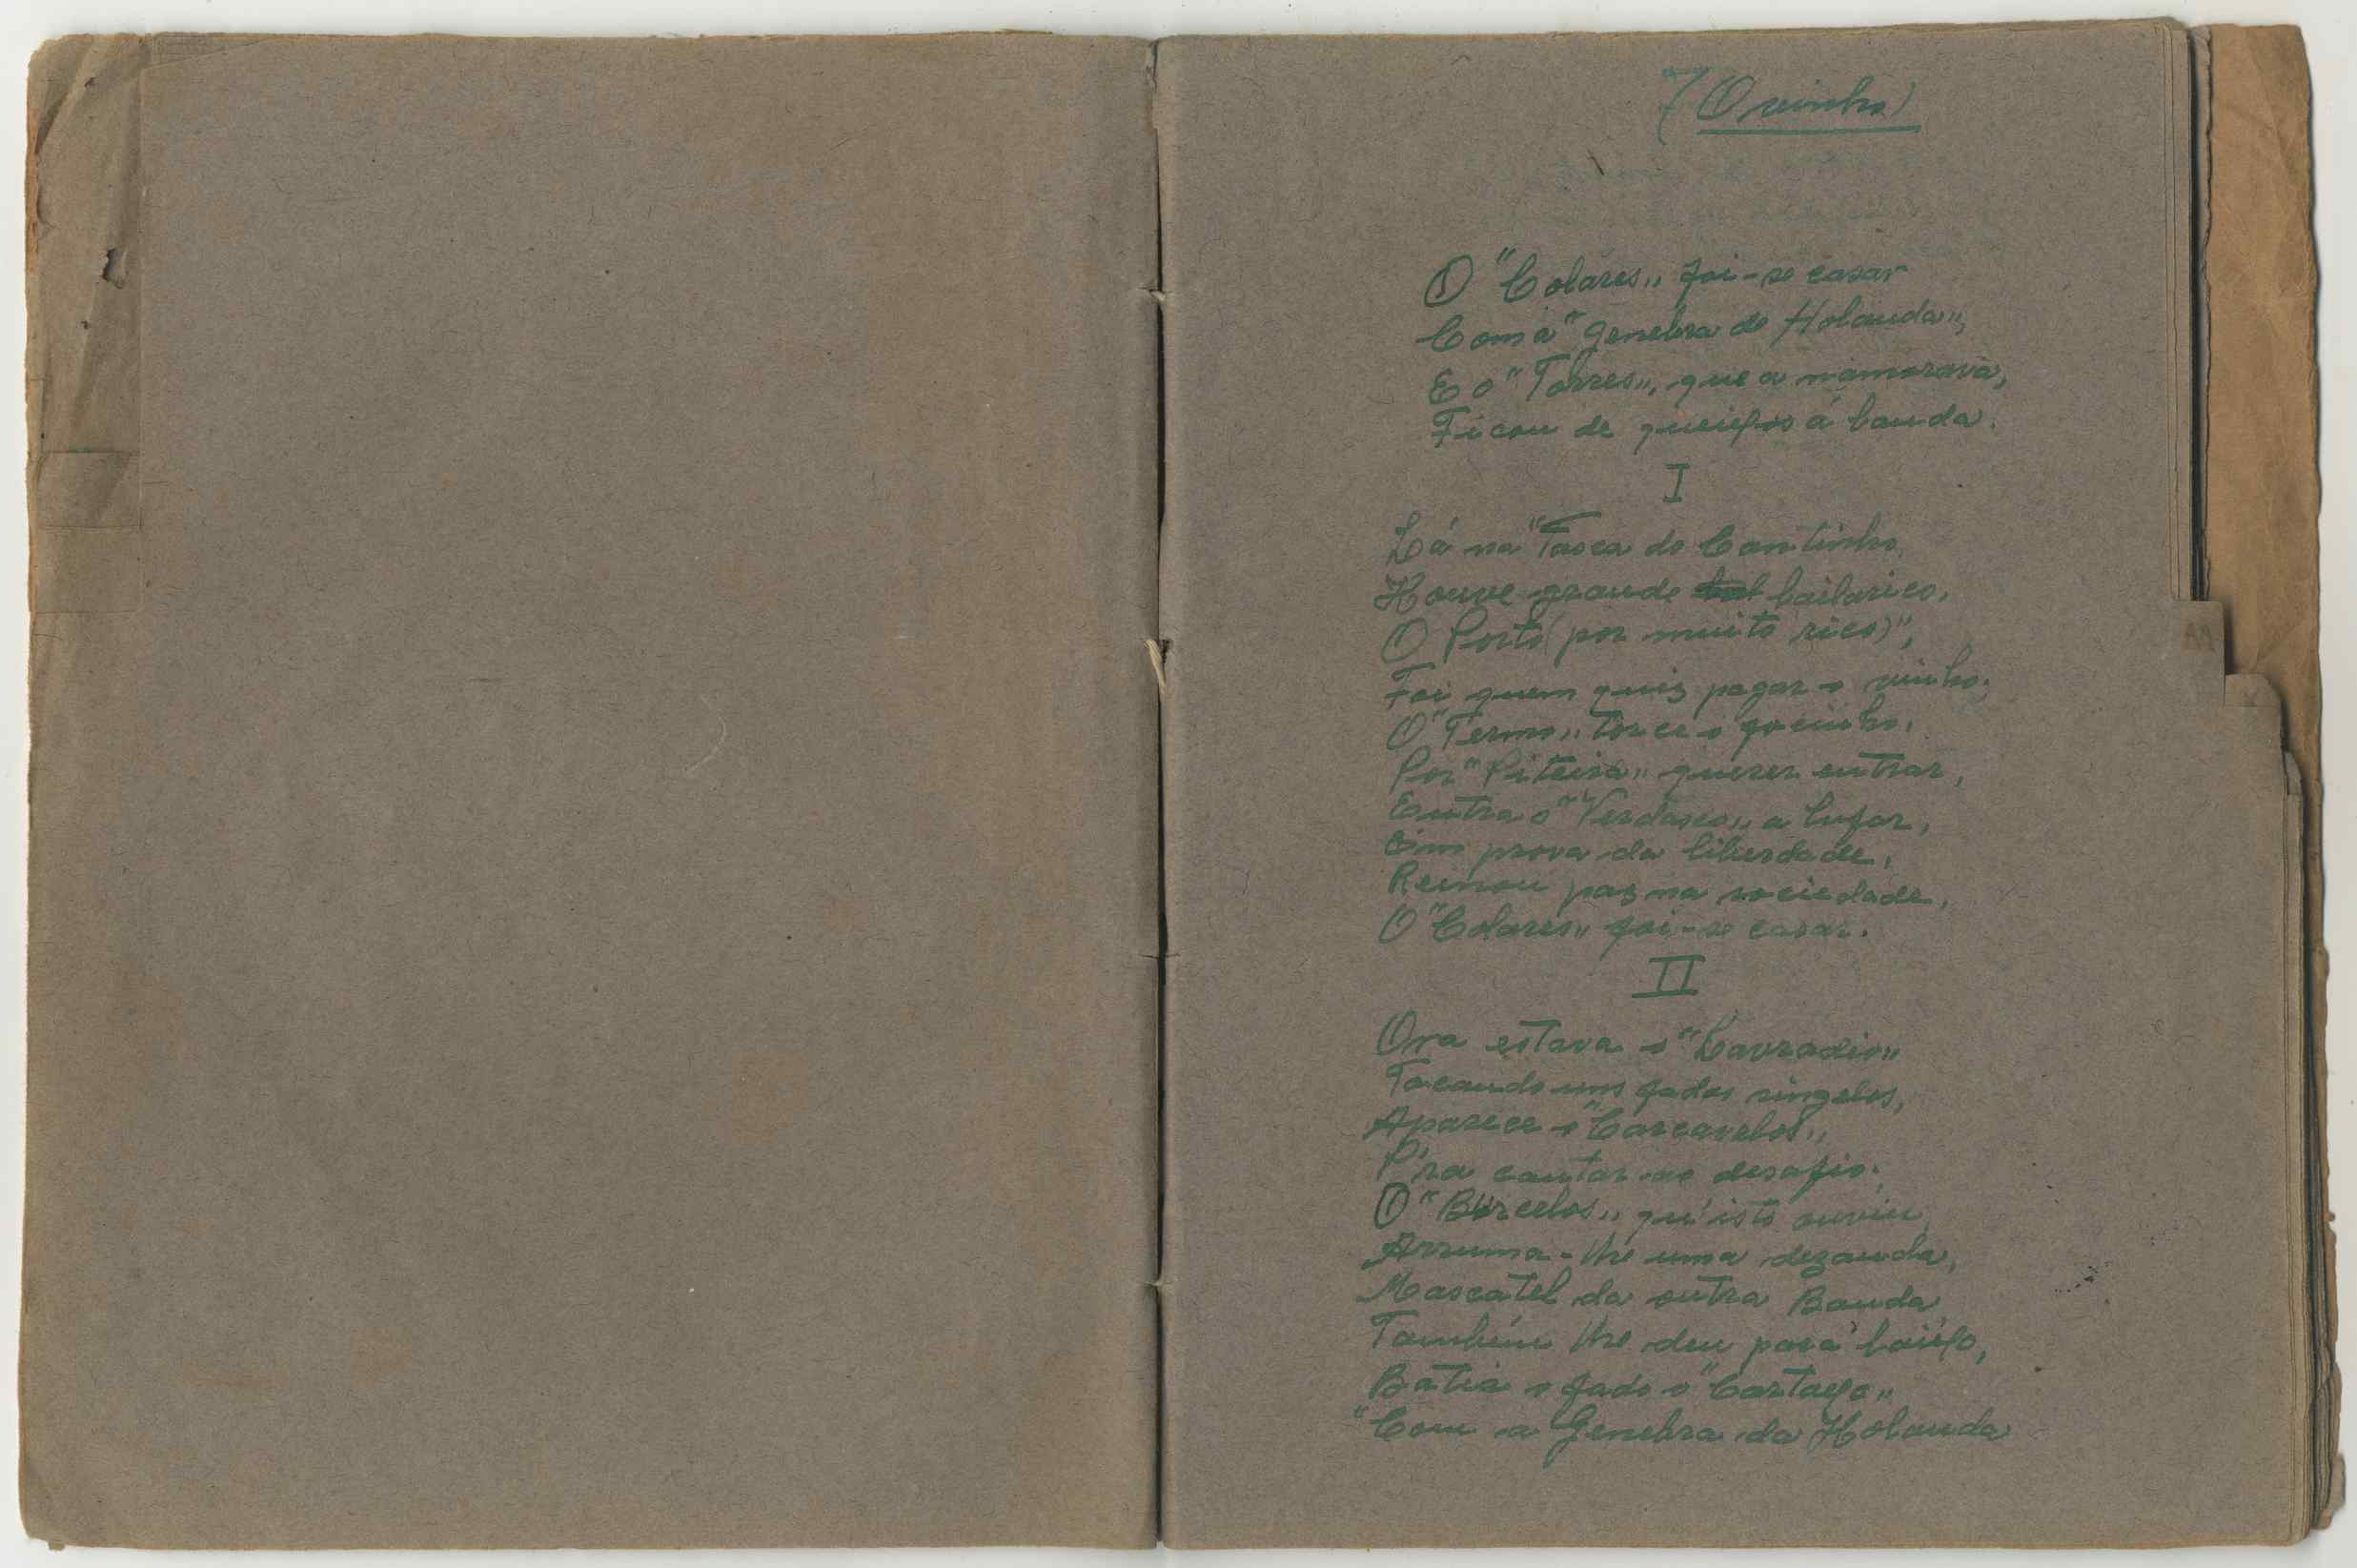 7 (O vinho)
O "Colares„ foi-se casar
Com a "Genebra de Holanda„,
E o "Torres„, que a namorava,
Ficou de queixos á banda.
I
Lá na "Tasca do Cantinho
Houve grande bailarico,
O Porto (por muito rico)",
Foi quem quiz pagar o vinho;
O "Termo„ torce o focinho,
Por "Piteira„ querer entrar,
Entra o "Verdasco„ a bufar,
Em prova da liberdade,
Reinou paz na sociedade,
O "Colares„ foi-se casar.
II
Ora estava o "Lavradio„
Tocando uns fados singelos,
Aparece o "Carcavelos„,
P'ra cantar ao desafio;
O "Barcelos„ qu'isto ouviu
Arruma-lhe uma dezanda,
Moscatel da outra Banda
Também lhe deu para baixo,
Batia o fado o "Cartaxo„
"Com a Genebra da Holanda